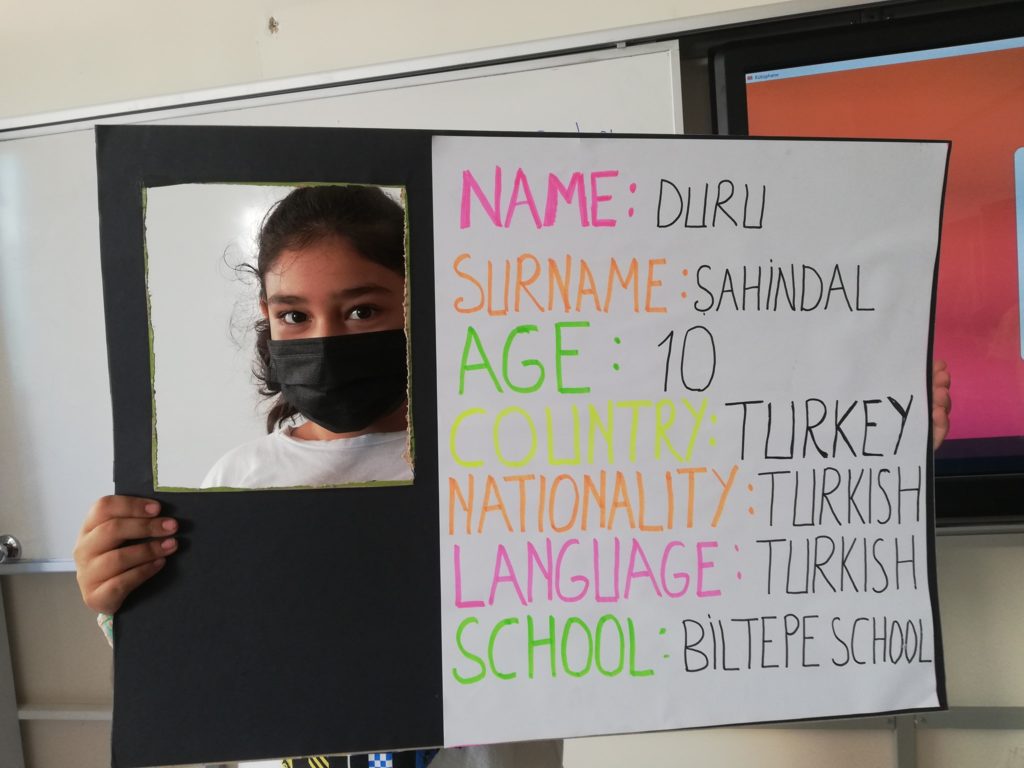 Kütüphane
NAME: DURU
SURNAME: ŞAHİNDAL
AGE: 10
COUNTRY: TURKEY
NATIONALITY: TURKISH
LANGUAGE: TURKISH
SCHOOL: BİLTEPE SCHOOL